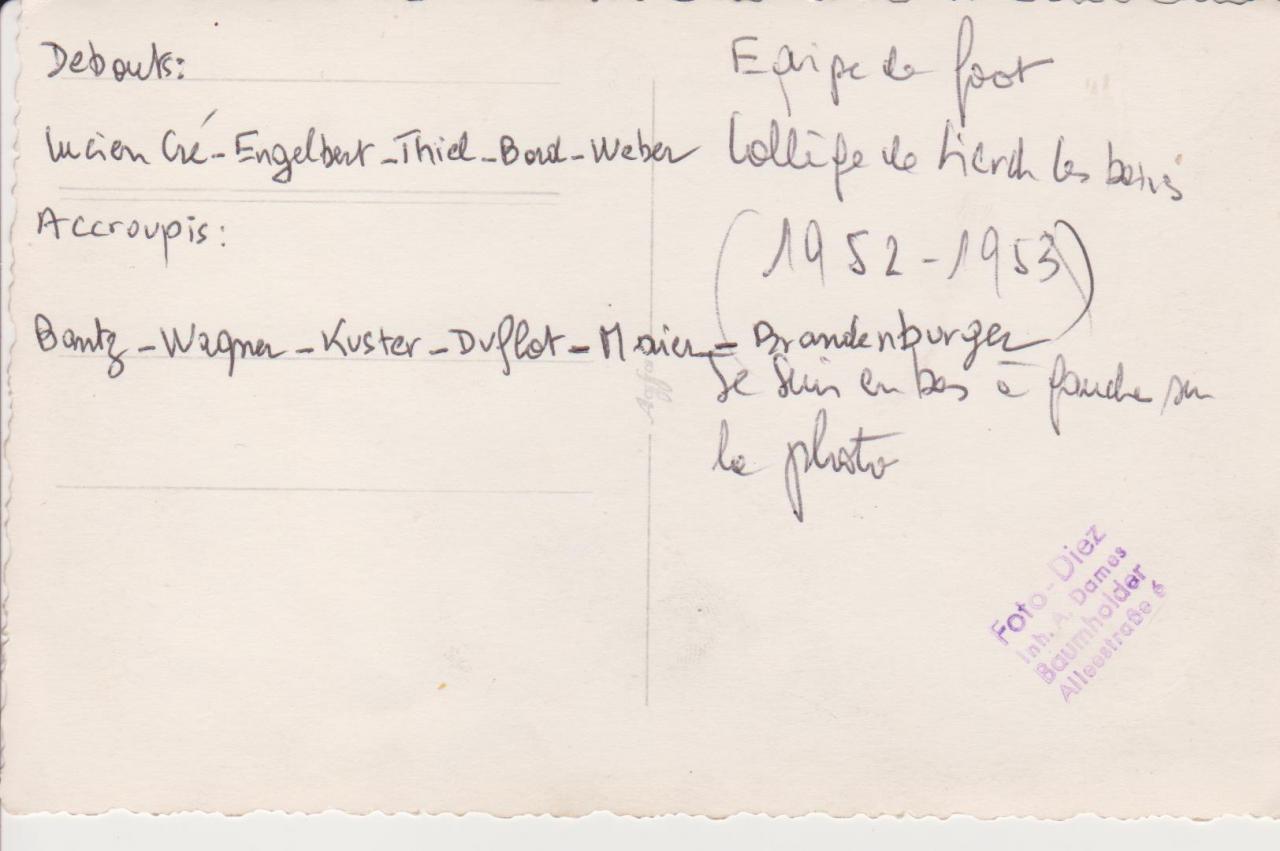 Debouts:
Lucien Cré - Engelbert - Thiel - Bord - Weber
Accroupis:
Bantz - Wagner - Kuster - Duflot - Maier - Brandenburger
Equipe de foot
Collège de Sierck les bains
(1952-1953)
Je suis en bas à gauche sur
la photo
Agfa
Foto-Diez
Inh. A. Dames
Baumholder
Alleestraße 6